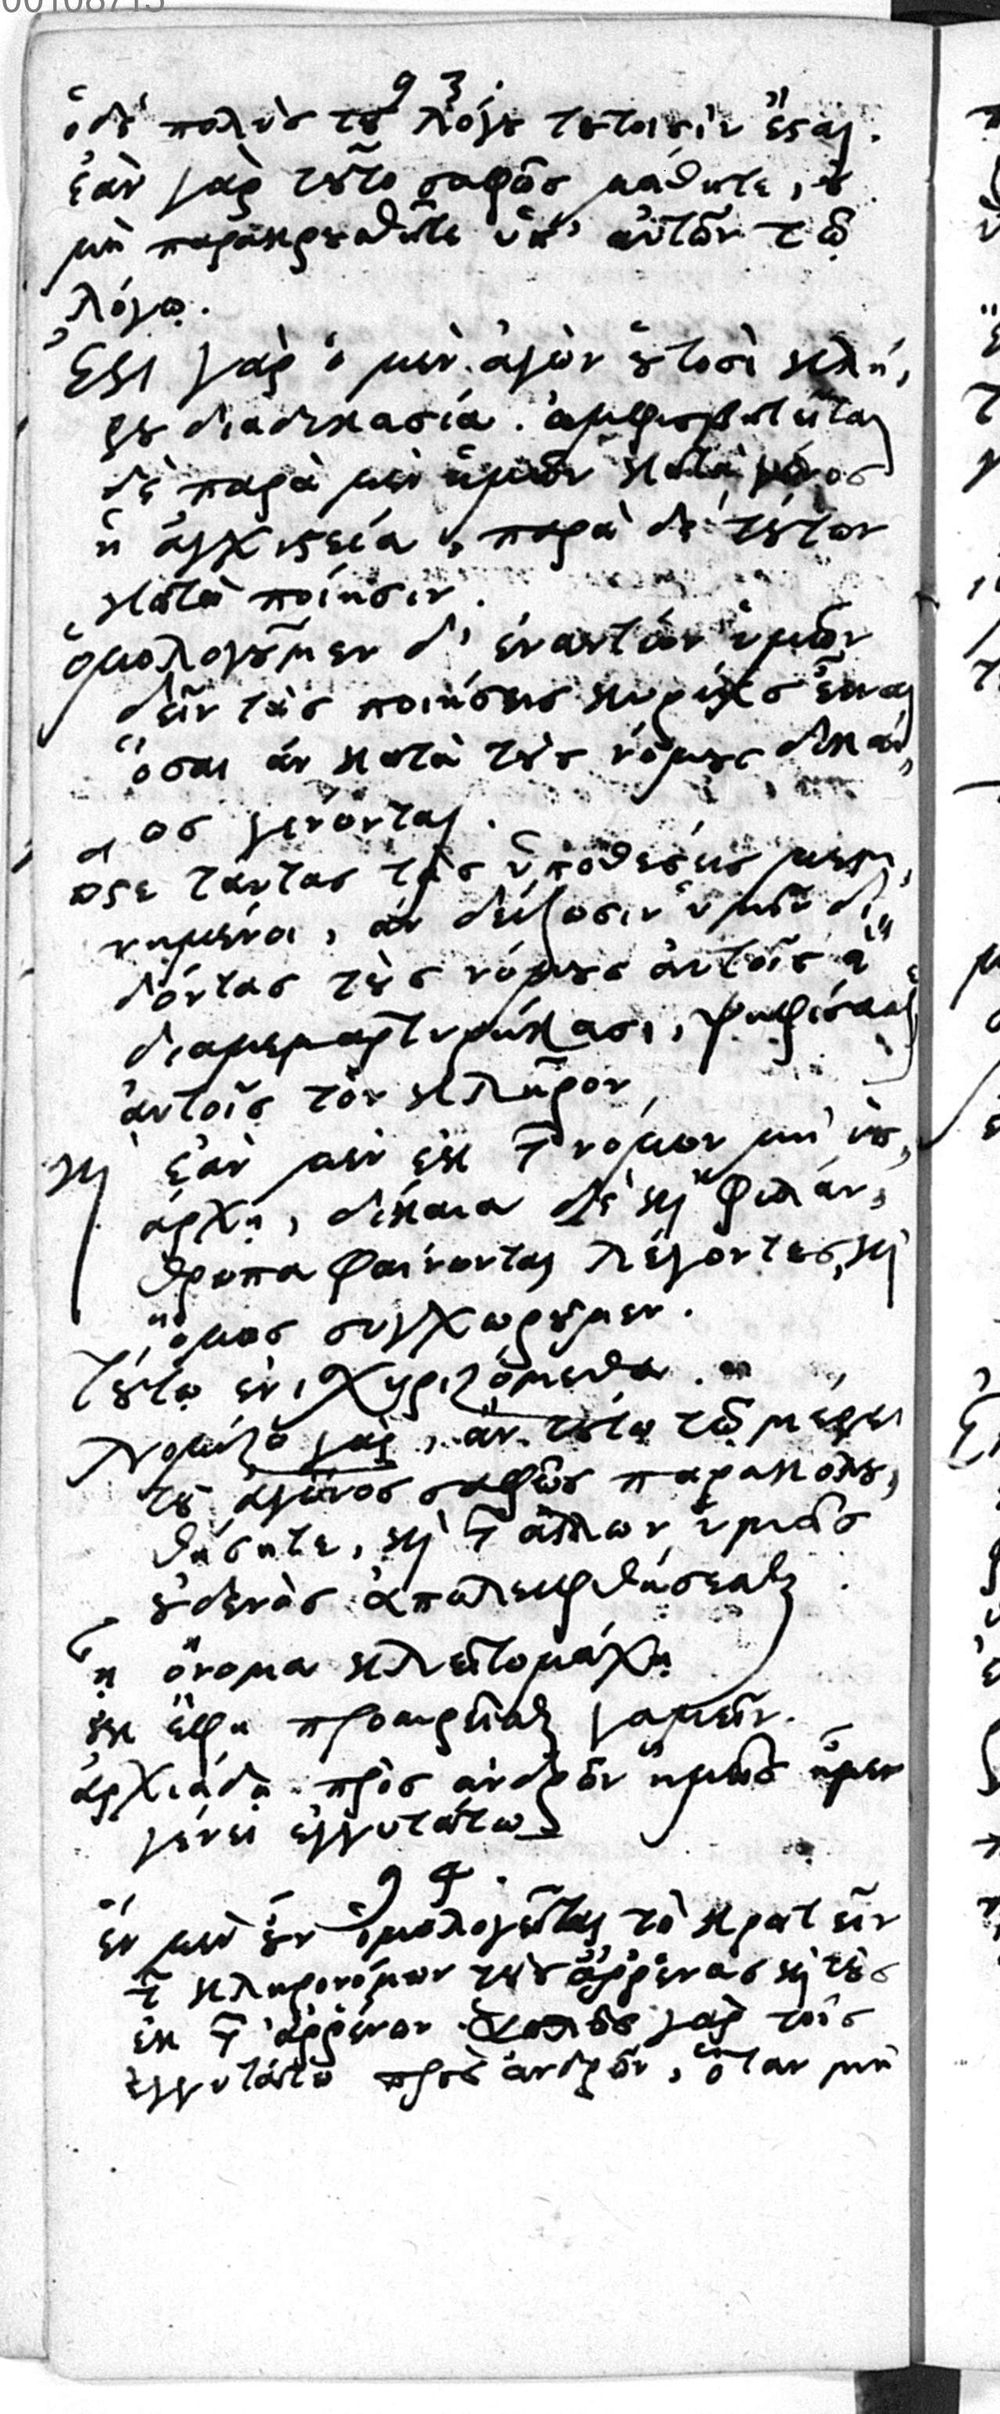 00108713
93.
ὁ δὲ πολὺς τȣ͂ λόγȣ τȣ́τοισιν ἔϛαι.
ἐὰν γὰρ τȣ͂το σαφῶς μάθητε, ȣ̓
μὴ παρακρȣσθῆτε ὑπ' αὐτῶν τῷ
λόγῳ.
Ἔϛι γὰρ ὁ μὲν ἀγὼν ȣ̔τοσὶ κλή,
ρȣ διαδικασία. ἀμφισβητεῖται
δὲ παρὰ μὲν ἡμῶν κατὰ γένος
ἡ ἀγχιϛεία, παρὰ δὲ τȣ́των
κατὰ ποίησιν.
ὁμολογȣ͂μεν δ' ἐναντίον ὑμῶν
δεῖν τὰς ποιήσεις κυρίας εἶναι
ὅσαι ἂν κατὰ τȣ̀ς νόμȣς δικαί,
ως γένωνται.
ὥϛε ταύτας τὰς ὑποθέσεις μεμ,
νημένοι, ἂν δείξωσιν ὑμῖν δι,
δόντας τȣ̀ς νόμȣς αὐτοῖς ἃ
διαμεμαρτυρήκασι, ψηφίσασθαι
αὐτοῖς τὸν κλῆρον
ϗ ἐὰν μὲν ἐκ τ̃ νόμων μὴ ὑπ,
άρχῃ, δίκαια δὲ ϗ φιλάν,
θρωπα φαίνωνται λέγοντες, ϗ
ὅμως συγχωρȣ͂μεν.
τȣ́τῳ ἐνισχυριζόμεθα.
Νομίζω γὰρ, ἂν τȣ́τῳ τῷ μέρει
τȣ͂ ἀγῶνος σαφῶς παρακολȣ,
θήσητε, ϗ τ̃ ἄλλων ὑμᾶς
ȣ̓δενὸς ἀπολειφθήσεσθαι.
ᾗ ὄνομα Κλειτομάχη
ȣ̓κ ἔφη προαιρεῖσθαι γαμεῖν.
ἀρχιάδῃ πρὸς ἀνδρῶν ἡμεῖς ἦμεν
γένει ἐγγυτάτω
94.
ἓν μὲν ȣ̓͂ν ὁμολογεῖται τὸ κρατεῖν
τ̃ κληρονόμων τȣ̀ς ἄῤῥενας ϗ τȣ̀ς
ἐκ τ̃ ἀῤῥένων· ἁπλῶς γὰρ τοῖς
ἐγγυτάτω πρὸς ἀνδρῶν, ὅταν μὴ